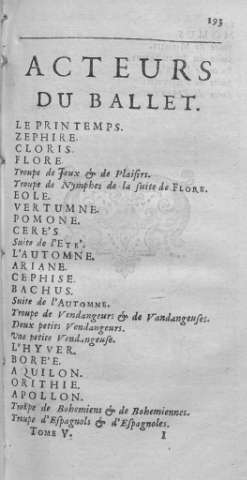 193
ACTEURS
DU BALLET.
LE PRINTEMPS.
ZEPHIRE.
CLORIS.
FLORE.
Troupe de Jeux & de Plaisirs.
Troupe de Nymphes de la suite de FLORE.
EOLE.
VERTUMNE.
POMONE.
CERE'S.
Suite de l'ETE'.
L'AUTOMNE.
ARIANE.
CEPHISE.
BACHUS.
Suite de l'AUTOMNE.
Troupe de Vendangeurs & de Vandangeuses.
Deux petits Vendangeurs.
Une petite Vendangeuse.
L'HYVER.
BORE'E.
AQUILON.
ORITHIE.
APOLLON.
Troupe de Bohemiens & de Bohemiennes.
Troupe d'Espagnols & d'Espagnoles.
TOME V. I